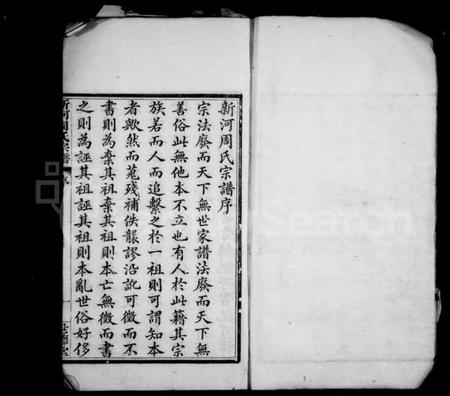 新河周氏宗譜序
宗法廢而天下無世家譜法廢而天下無
善俗此無他本不立也有人於此籍其宗
族若而人而追繫之於一祖則可謂知本
者歟然而蒐殘補佚襲謬沿訛可徵而不
書則為棄其祖棄其祖則本亡無徵而書
之則為誣其祖誣其祖則本亂世俗好侈
新河周氏宗譜
序
一